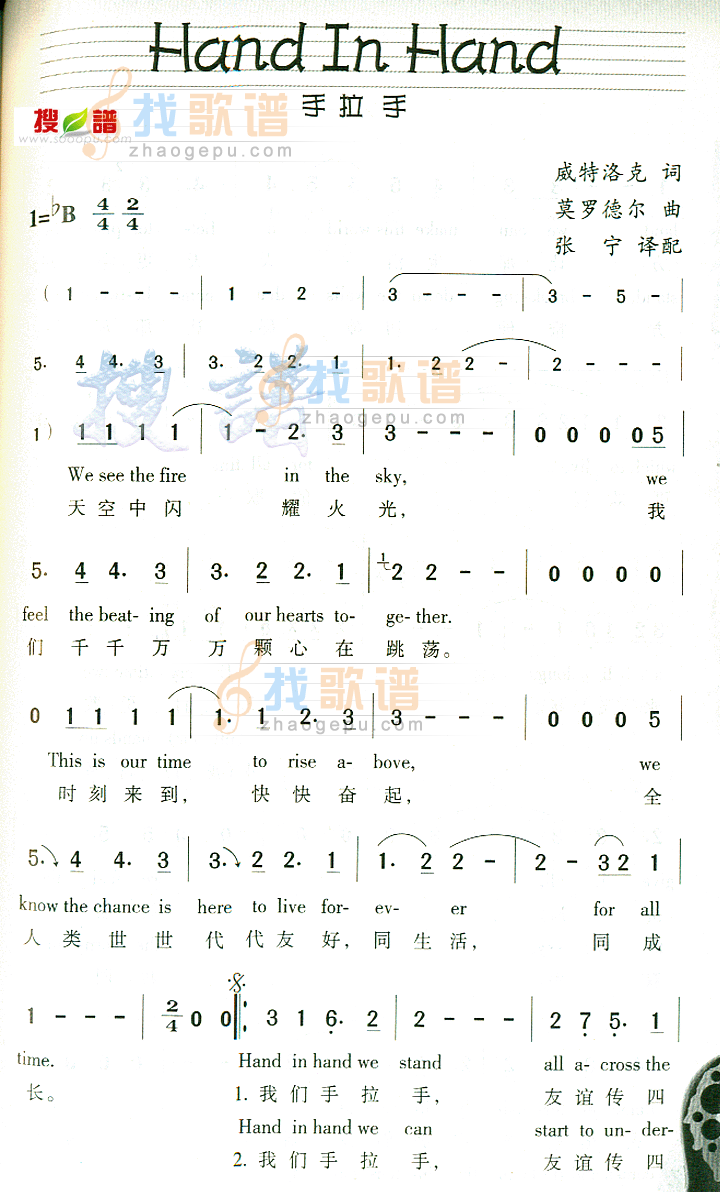 Hand In Hand
手拉手
搜谱
www.sooopu.com
找歌谱
zhaogepu.com
威特洛克 词
1=♭B 4/4 2/4
莫罗德尔 曲
张 宁 译配
( 1 - - - | 1 - 2 - | 3 - - - | 3 - 5 - |
5. 4 4. 3 | 3. 2 2. 1 | 1. 2 2 - | 2 - - - |
搜谱
找歌谱
zhaogepu.com
1 ) 1 1 1 1 1 | 1 - 2. 3 | 3 - - - | 0 0 0 0 0 5 |
We see the fire in the sky, we
天空中闪 耀火光, 我
5. 4 4. 3 | 3. 2 2. 1 | 1 2 2 - - | 0 0 0 0 |
feel the beat- ing of our hearts to- ge- ther.
们 千 千 万 万 颗 心 在 跳 荡。
找歌谱
zhaogepu.com
0 1 1 1 1 1 | 1. 1 2. 3 | 3 - - - | 0 0 0 5 |
This is our time to rise a- bove, we
时刻来到, 快快奋起, 全
5. 4 4. 3 | 3. 2 2. 1 | 1. 2 2 - | 2 - 3 2 1 |
know the chance is here to live for- ev- er for all
人 类 世 世 代 代 友 好, 同 生 活, 同 成
1 - - - | 2/4 0 0 𝄋 ‖: 3 1 6. 2 | 2 - - - | 2 7 5. 1 |
time. Hand in hand we stand all a- cross the
长。 1. 我们手拉手, 友谊传四
Hand in hand we can start to un- der-
2. 我们手拉手, 友谊传四